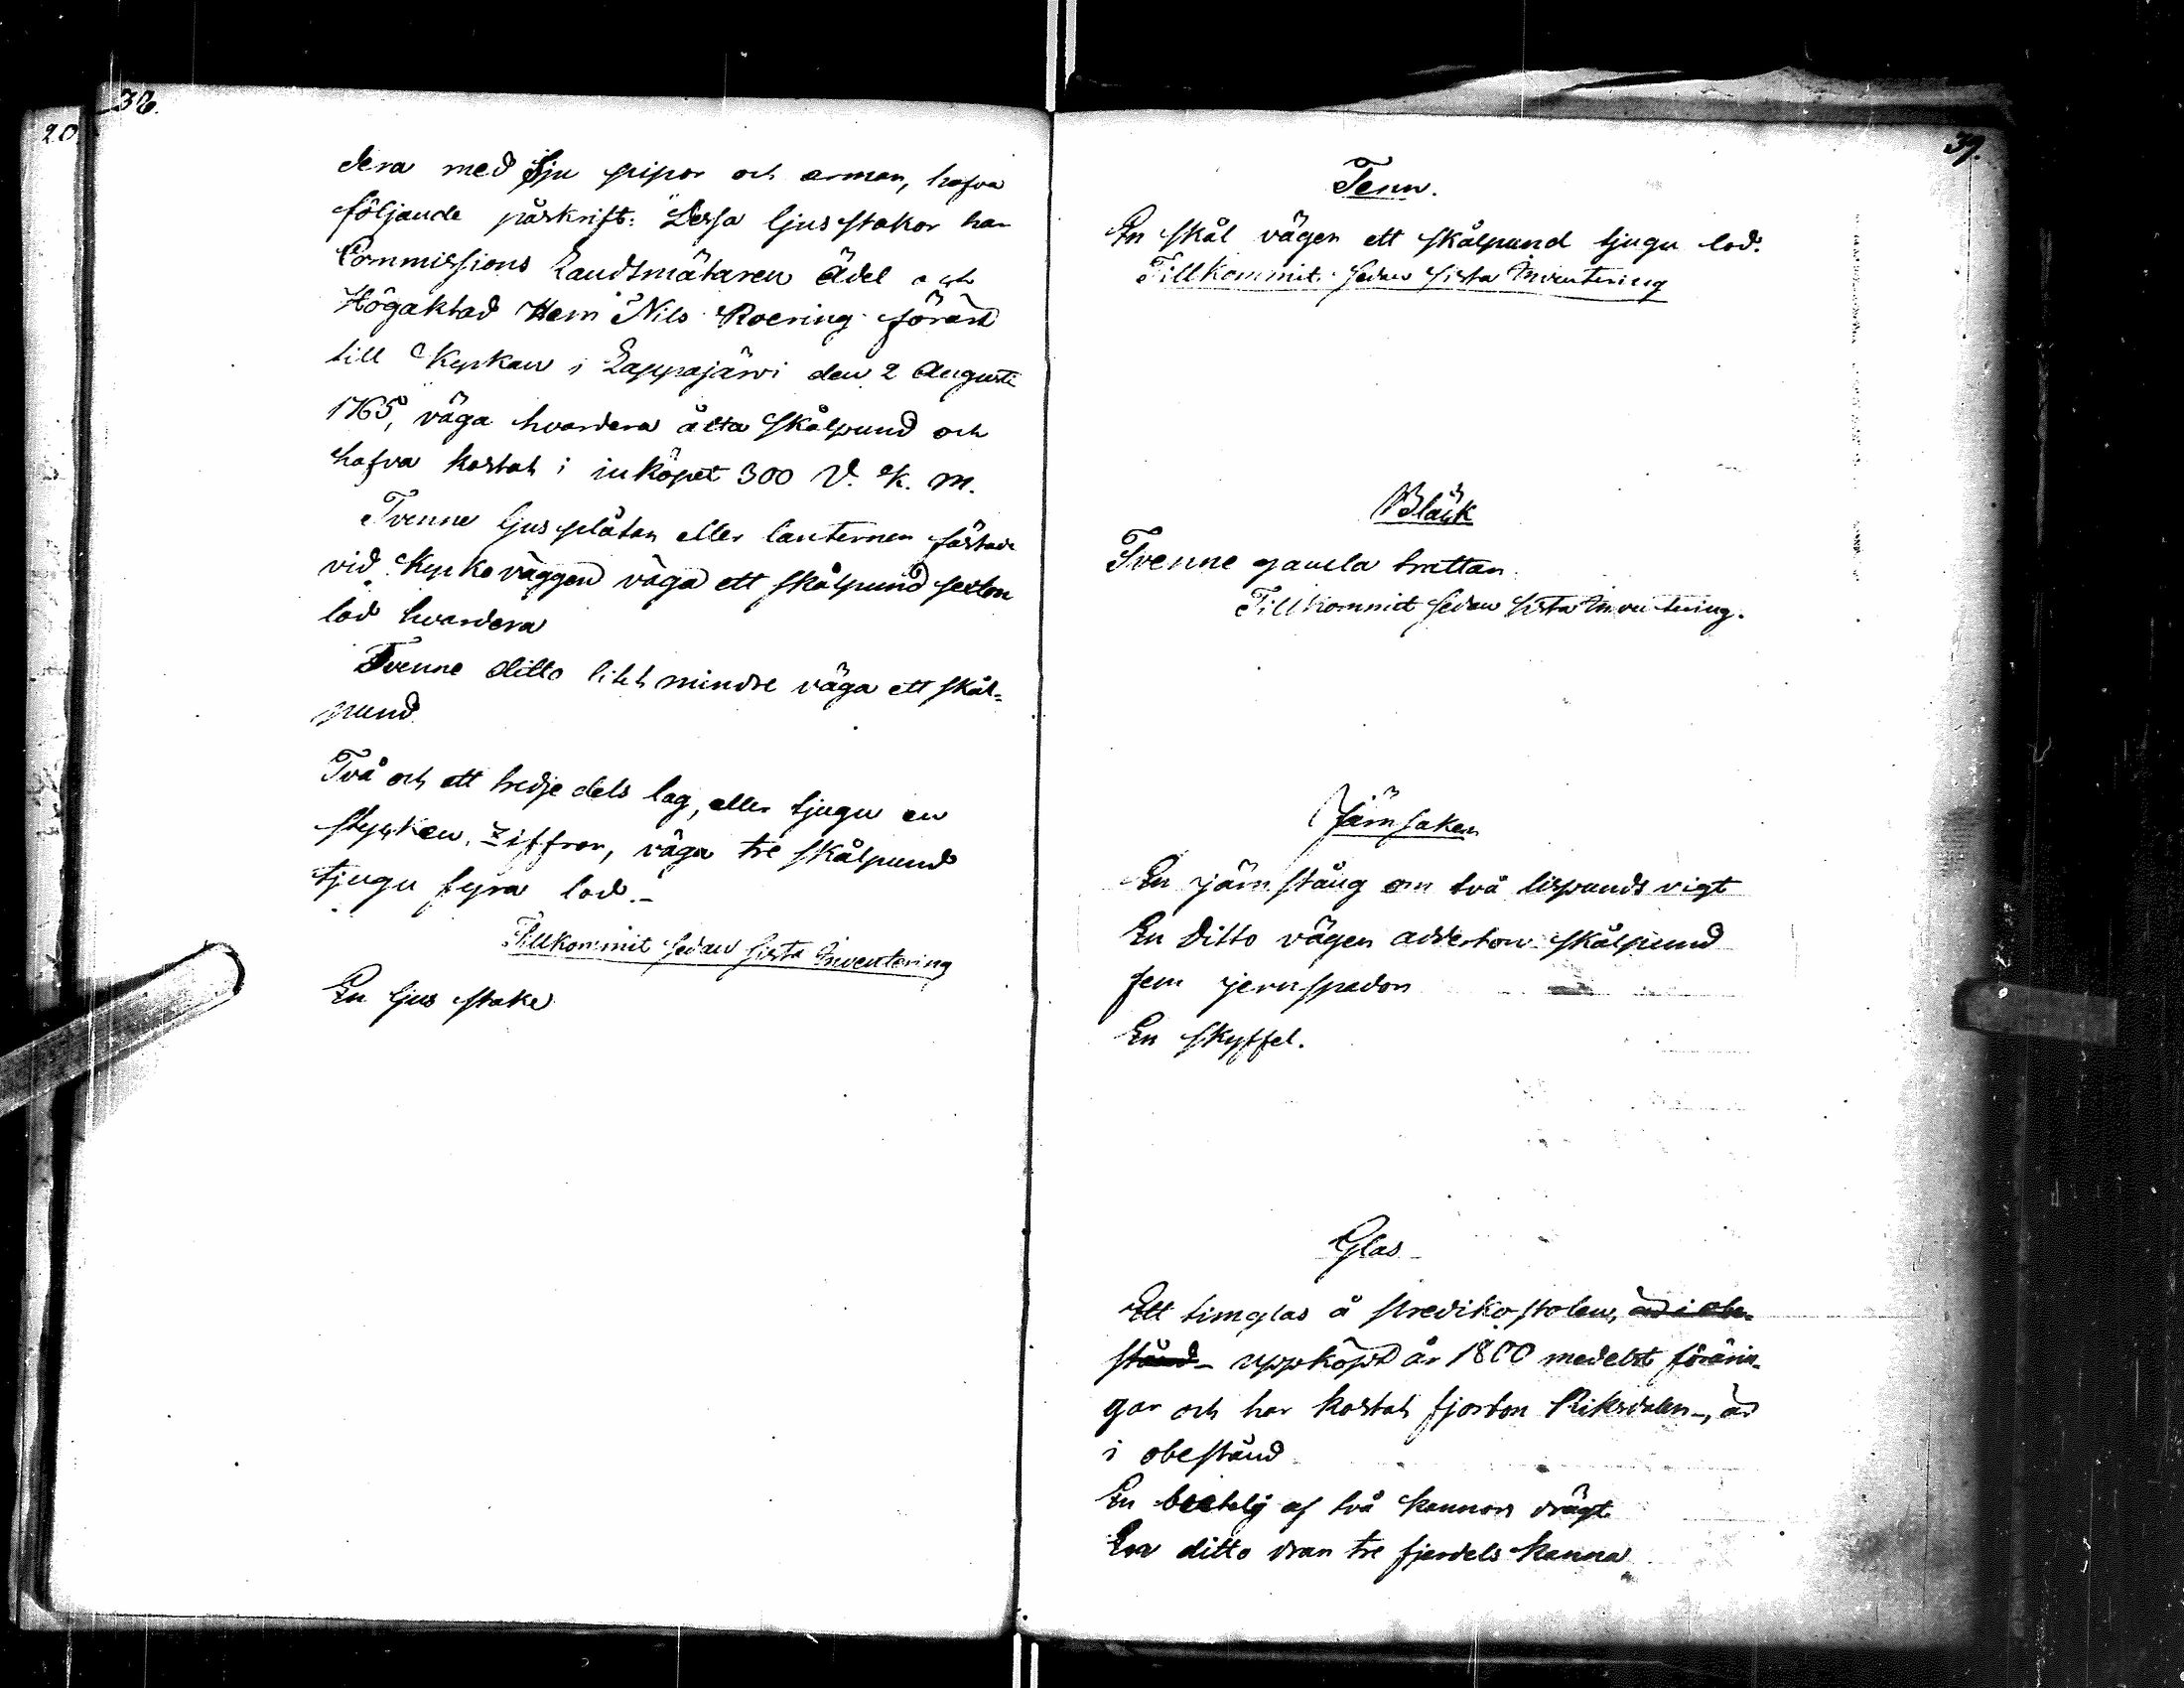 38.
20
dera med Sju pipor och armar, hafva
följande påskrift: Dessa ljus stakar har
Commissions Landtmätaren Ädel och
Högaktad Herr Nils Roering förärt
till Kyrkan i Lappajärvi den 2 Augusti
1765, väga hvardera åtta skålpund och
hafva kostat i inköpet 300 D. K. M.
Tvenne ljus plåtar eller lanternor fästade
vid Kyrko väggen väga ett skålpund sexton
lod hvardera
Tvenne ditto litet mindre väga ett skål-
pund
Två och ett tredje dels lag, eller tjugu en
stycken, Ziffror, väga tre skålpund
tjugu fyra lod.-
Tillkommit sedan sista Inventering
En ljus stake
39.
Tenn.
En skål väger ett skålpund tjugu lod.
Tillkommit sedan sista Inventering
Bläck
Tvenne gamla trattar.
Tillkommit sedan sista Inventering.
Järnsaker
En järn stång om två lispunds vigt
En Ditto väger aderton skålpund
fem jernspador
En skyffel.
Glas
Ett timglas å predikostolen, är i obe-
stånd - uppköpt år 1800 medelst förärin-
gar och har kostat fjorton Riksdaler-, är
i obestånd
En butelj af två kannors drägt
En ditto dran tre fjerdels kanna